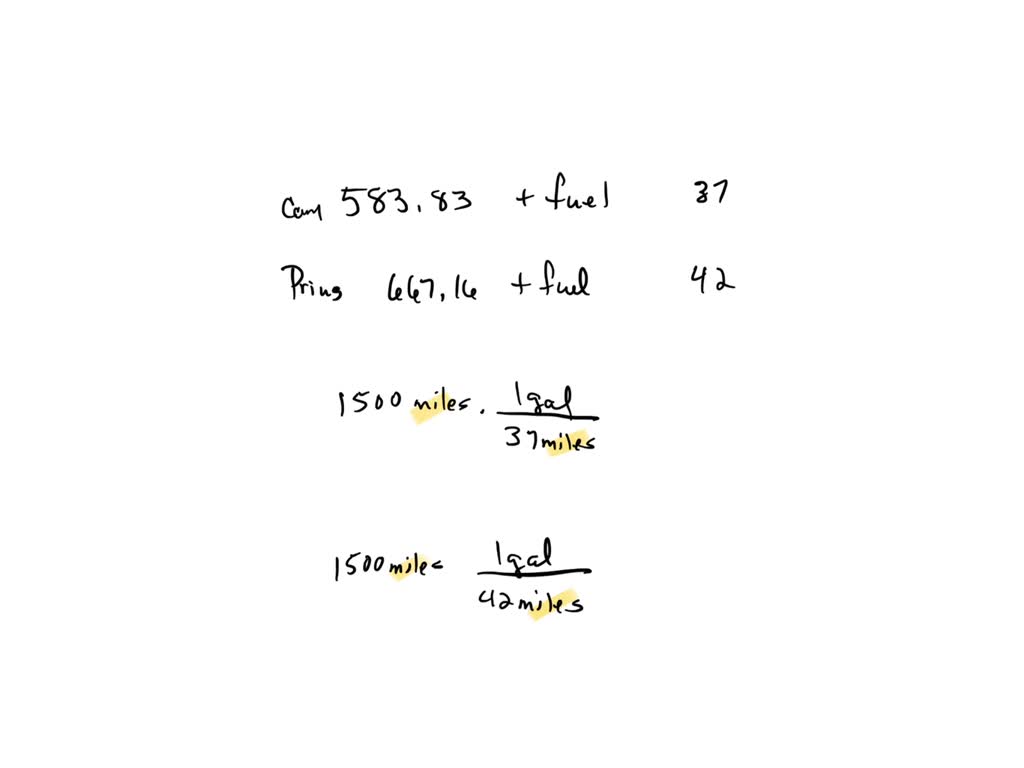 Cam 583.83 + fuel 37
Prius 667.16 + fuel 42
1500 miles . 1gal
37miles
1500 miles 1gal
42 miles